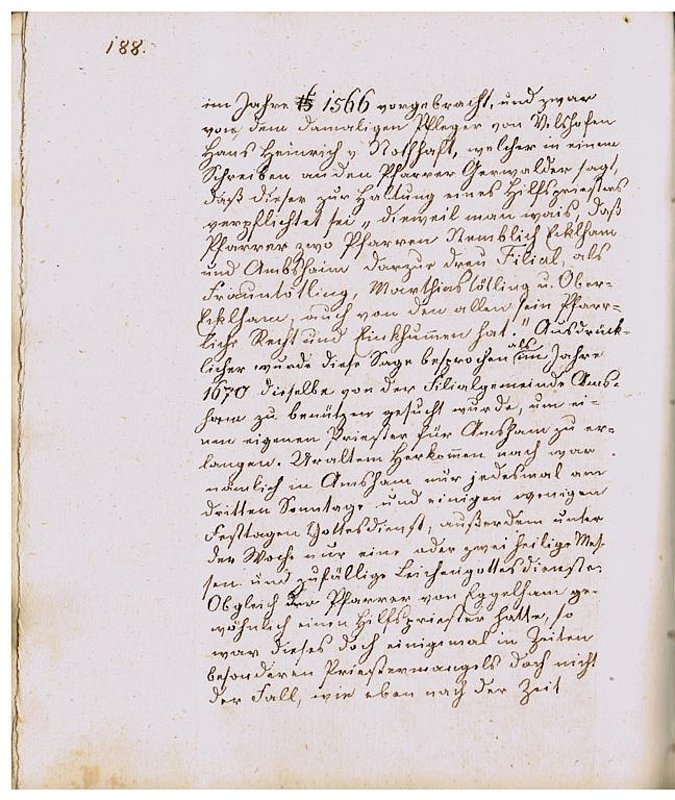 188.
im Jahre 1566 vorgebracht, und zwar
von dem damaligen Pfleger von Vilshofen
Hans Heinrich v Nothhaft, welcher in einem
Schreiben an den Pfarrer Gerwalder sagt,
daß dieser zur Haltung eines Hilfspriesters
verpflichtet sei „dieweil man wais, daß
Pfarrer zwo Pfarren Nemblich Ecklham
und Ambshaim darzue dreu Filial, als
Frauntötling, Marthinstötling u. Ober-
Ecklham, auch von den allen sein Pfarr-
liche Recht und Einkhumen hat." Ausdrück-
licher wurde diese Sage besprochen als im Jahre
1670 dieselbe von der Filialgemeinde Ams-
ham zu benützen gesucht wurde, um ei-
nen eigenen Priester für Amsham zu er-
langen. Uraltem Herkom̄en nach war
nämlich in Amsham nur jedesmal am
dritten Sonntage und einigen wenigen
Festtagen Gottesdienst, außerdem unter
der Woche nur eine oder zwei heilige Mes-
sen und zufällige Leichengottesdienste.
Obgleich Pfarrer von Eggelham ge-
wöhnlich einen Hilfspriester hatte, so
war dieses doch einigemal in Zeiten
besonderen Priestermangels doch nicht
der Fall, wie eben nach der Zeit